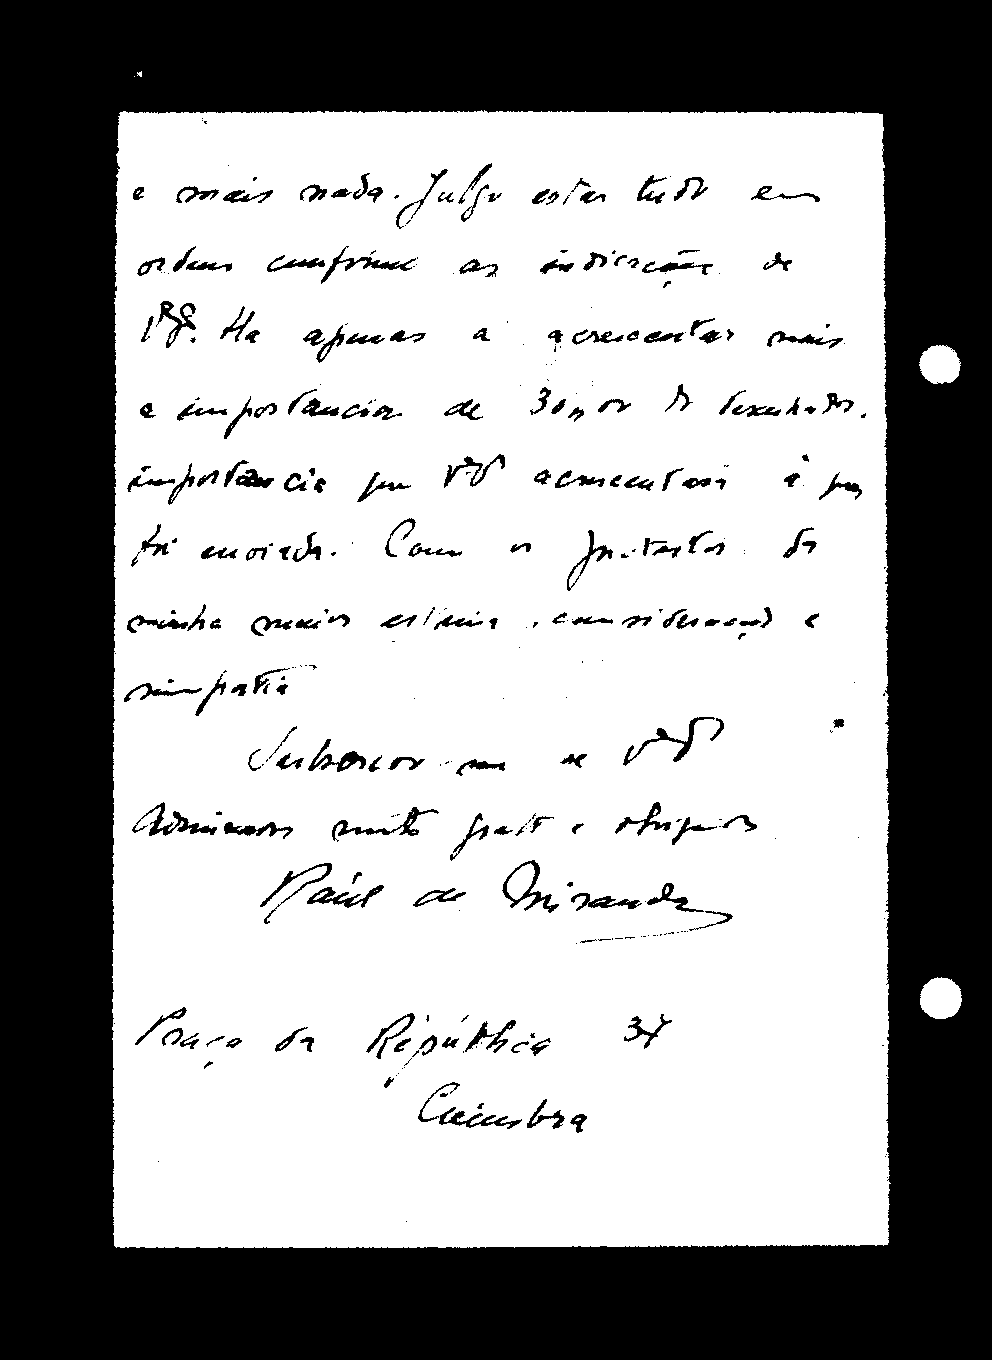 e mais nada. Julgo estar tudo em
ordem conforme as indicações de
V. Ha apenas a acrescentar mais
a importancia de do desenhador,
importancia que acrescentará á que
foi enviada. Com os protestos da
minha maior estima, consideração e
simpatia
Subscrevo-me de
Admirador muito grato e obrigado
Raúl de Miranda
Praça da República 37
Coimbra